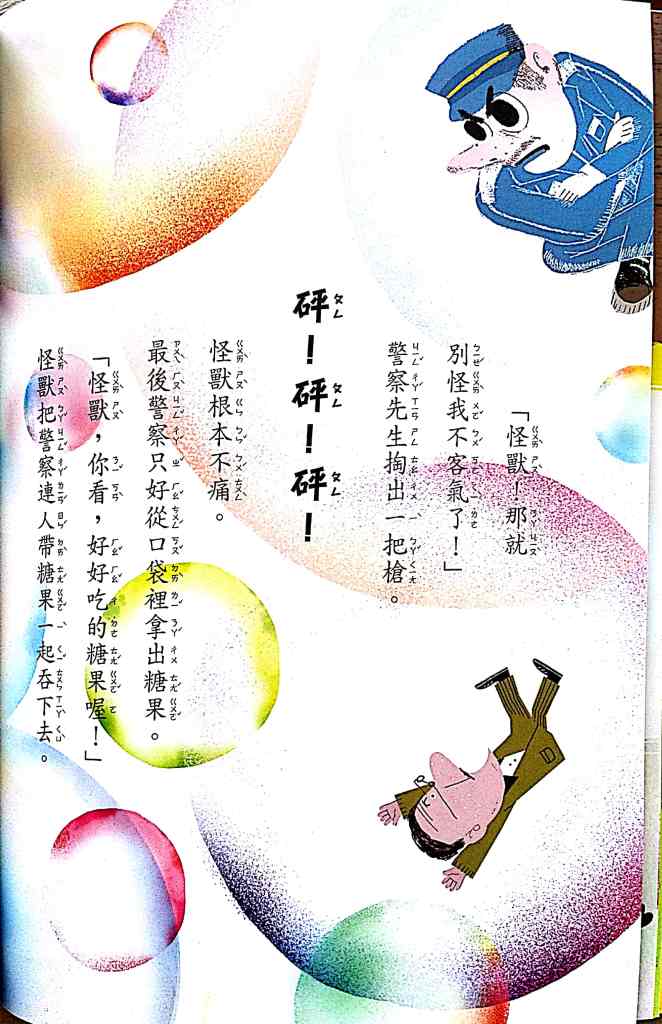 「怪獸！那就
別怪我不客氣了！」
警察先生掏出一把槍。
砰！砰！砰！
怪獸根本不痛。
最後警察只好從口袋裡拿出糖果。
「怪獸，你看，好好吃的糖果喔！」
怪獸把警察連人帶糖果一起吞下去。